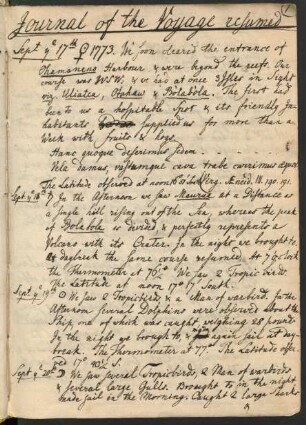 Journal of the Voyage resumed
1
Sept yᵉ 17th ♀ 1773. We soon cleard the entrance of
Ohamaneno Harbour & were beyond the reefs. Our
course was WSW. & we had at once 3 Isles in Sight
viz. Uliatea, Otahaw & Bolabola. The first had
been to us a hospitable Spot & its friendly In-
habitants supplied us for more than a
Week with fruits & hogs.
Hanc quoque deserimus sedem
Vela damus, vastumque cava trabe currimus æquor.
Virg. Æneid. III. 190. 191.
The Latitude observed at noon 16°
Sept yᵉ 18th In the Afternoon we saw Maurua at a Distance as
a Single hill rising out of the Sea, whereas the peak
of Bolabola is divided & perfectly represents a
Volcano with its Crater. In the night we brought to
At daybreak the same course resumed. At 7 o'clock
the Thermometer at 76°. We saw 2 Tropicbirds.
The Latitude at noon 17° 17' South.
Sept yᵉ 19th ☉ We saw 2 Tropicbirds & a Man of warbird. In the
Afternoon several Dolphins were observed about the
Ship, one of which was caught weighing 28 pounds.
In the night we brought to, & again sail at day-
break. The Thermometer at 77°. The Latitude obser-
ved 17° S.
Sept yᵉ 20th We saw several Tropicbirds, 2 Man of warbirds
& several large Gulls. Brought to in the night
made sail in the Morning. Caught 2 large sharks